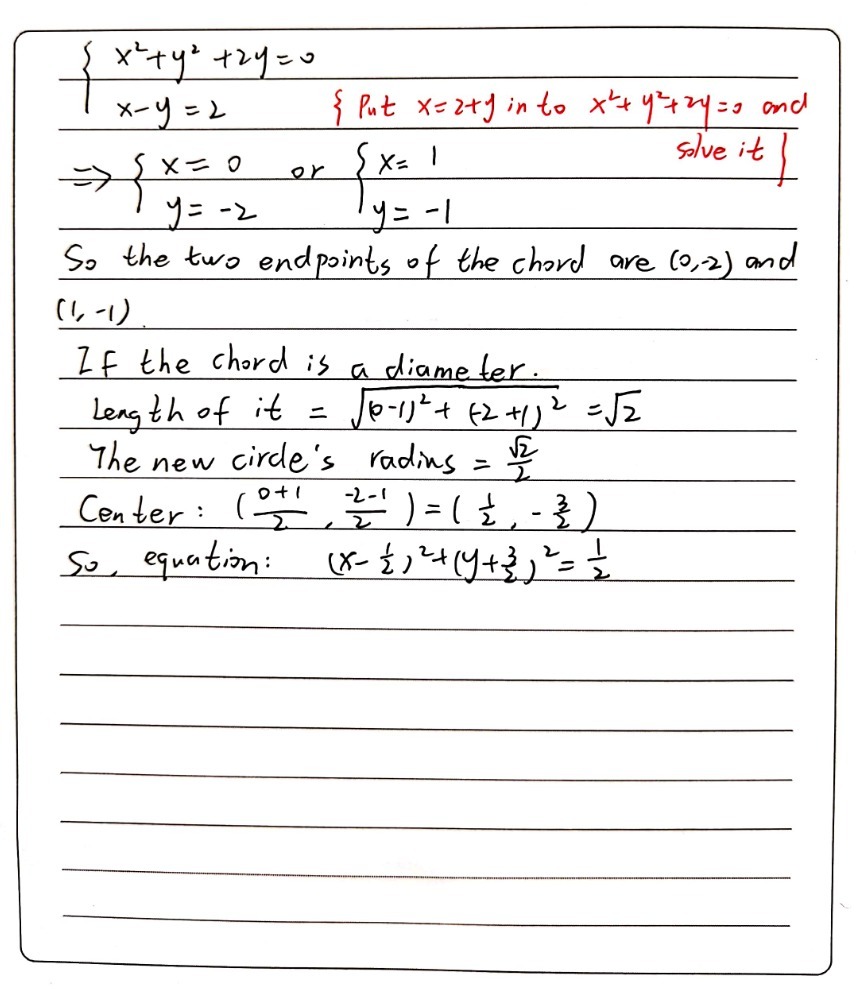 { x²+y²+2y=0
x-y=2 { Put x=2+y in to x²+y²+2y=0 and
solve it }
⇒ { x=0 or { x=1
y=-2 y=-1
So the two endpoints of the chord are (0,-2) and
(1,-1).
If the chord is a diameter.
Length of it = √((0-1)²+(-2+1)²) =√2
The new circle's radius = √2/2
Center: ((0+1)/2, (-2-1)/2)=(1/2, -3/2)
So, equation: (x-1/2)²+(y+3/2)²=1/2